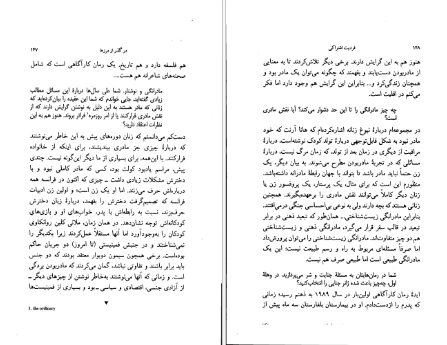 ۱۴۸
فردیت اشتراکی
هنوز هم به این گرایش دارند. برخی دیگر تلاش کردند تا به معنایی
از مادربودن دست‌یابند و بفهمند که چگونه می‌توان یک مادر بود و
همچنان زندگی کرد و... بنابراین این گرایش هم وجود دارد اما فکر
می‌کنم در اقلیت است.
چه چیز مادرانگی را تا این حد دشوار می‌کند؟ آیا نقش مادری
در مجموعه‌ام دربارهٔ نبوغ زنانه اشاره کرده‌ام که هانا آرنت که خود
مادر نبود به شکل قابل‌توجهی دربارهٔ تولد کودک نوشته است. دربارهٔ
مراقبت از دیگری در زمان بعد از تولد که زمان مرگ نیست. دربارهٔ
مسائلی که در تجربهٔ مادربودن مطرح می‌شوند. به بیان دیگر، یک
زن حتماً نباید مادر باشد تا بتواند با جهان رابطهٔ مادرانه داشته باشد.
منظورم این است که برای مثال یک پرستار، یک پروفسور زن یا
زنان دیگر کاملاً می‌توانند نقش مادری را برعهده بگیرند. همچنین
زنانی هستند که بچه دارند ولی به نوعی بی‌احساسی جنگی درمی‌افتند.
بنابراین مادرانگی زیست‌شناختی... همان‌طور که تبعید ذهنی در برابر
تبعید در قالب سفر قرار می‌گیرد، مادرانگی زیست‌شناختی و مادرانگی
هم دو چیز متفاوت‌اند. مادرانگی زیست‌شناختی را می‌توان پرورش داد
اما صرفاً مسئله‌ای مربوط به راه و رسم طبیعت نیست؛ این یک
مادرانگی طبیعی است اما طبیعی صرف هم نیست.
شما در رمان‌هایتان به مسئلهٔ جنایت و شر می‌پردازید. در وهلهٔ
اول، چه چیز باعث شد ژانر جنایی را انتخاب کنید؟
ایدهٔ رمان کارآگاهی اولین‌بار در سال ۱۹۸۹ به ذهنم رسید زمانی
که پدرم را از دست دادم. او در بیمارستان بلغارستان سه ماه پیش از
در گذر از مرزها
۱۴۷
هم فلسفه دارد و هم تاریخ، یک رمان کارآگاهی است که شامل
صحنه‌های شاعرانه هم هست...
مادرانگی و نوشتار. شما طی سال‌ها دربارهٔ این مسائل مطالب
زیادی گفته‌اید. جایی خواندم که شما این عقیده را بیان کرده‌اید که
برخی از زنان به این دلیل به نوشتن گرایش دارند که از
نقش مادری فرار کنند یا از امر روزمره¹ فراتر بروند. هنوز هم به این
نظرات اعتقاد دارید؟
دست‌کم می‌دانستم که زنان دوره‌های پیش به این خاطر می‌نوشتند
که دربارهٔ چیزی جز مادری بیندیشند، برای اینکه از خانواده
فرار کنند. با این همه، برای بسیاری از ما دیگر این‌گونه نیست. چندی
پیش مراسم یادبود کولت بود، کسی که مادر کاملی نبود و با
دخترش مشکلات زیادی داشت ـ چیزی که اکنون در فرانسه همه
درباره‌اش حرف می‌زنند. اما او یک زن است؛ و اولین زن ادبیات
فرانسه که تصمیم گرفت دخترش را بفهمد، دربارهٔ زبان دخترش
حرف بزند، نسبت به رابطه‌اش با پدر، خواب‌های او و بازی‌های
کودکانه‌اش توجه نشان دهد. در همان زمان ملانی کلاین روانکاوی
کودکان را به وجود آورد اما آنها مستقلاً عمل کردند زیرا یکدیگر را
نمی‌شناختند و در جنبش فمینیستی (تا امروز) دو جریان حاکم
است. برخی همچون سیمون دوبووار معتقد بودند که دو جنس
باید برابر باشند و تفاوتی نباشد، گمان می‌کردند که مادربودن بردگی
است. و زمانی که آنها می‌نوشتند، به‌خاطر نوشتن از چیزهای دیگر ـ
از آزادی جنسی، اقتصادی و سیاسی ـ بود و بسیاری از فمینیست‌ها
1. the ordinary